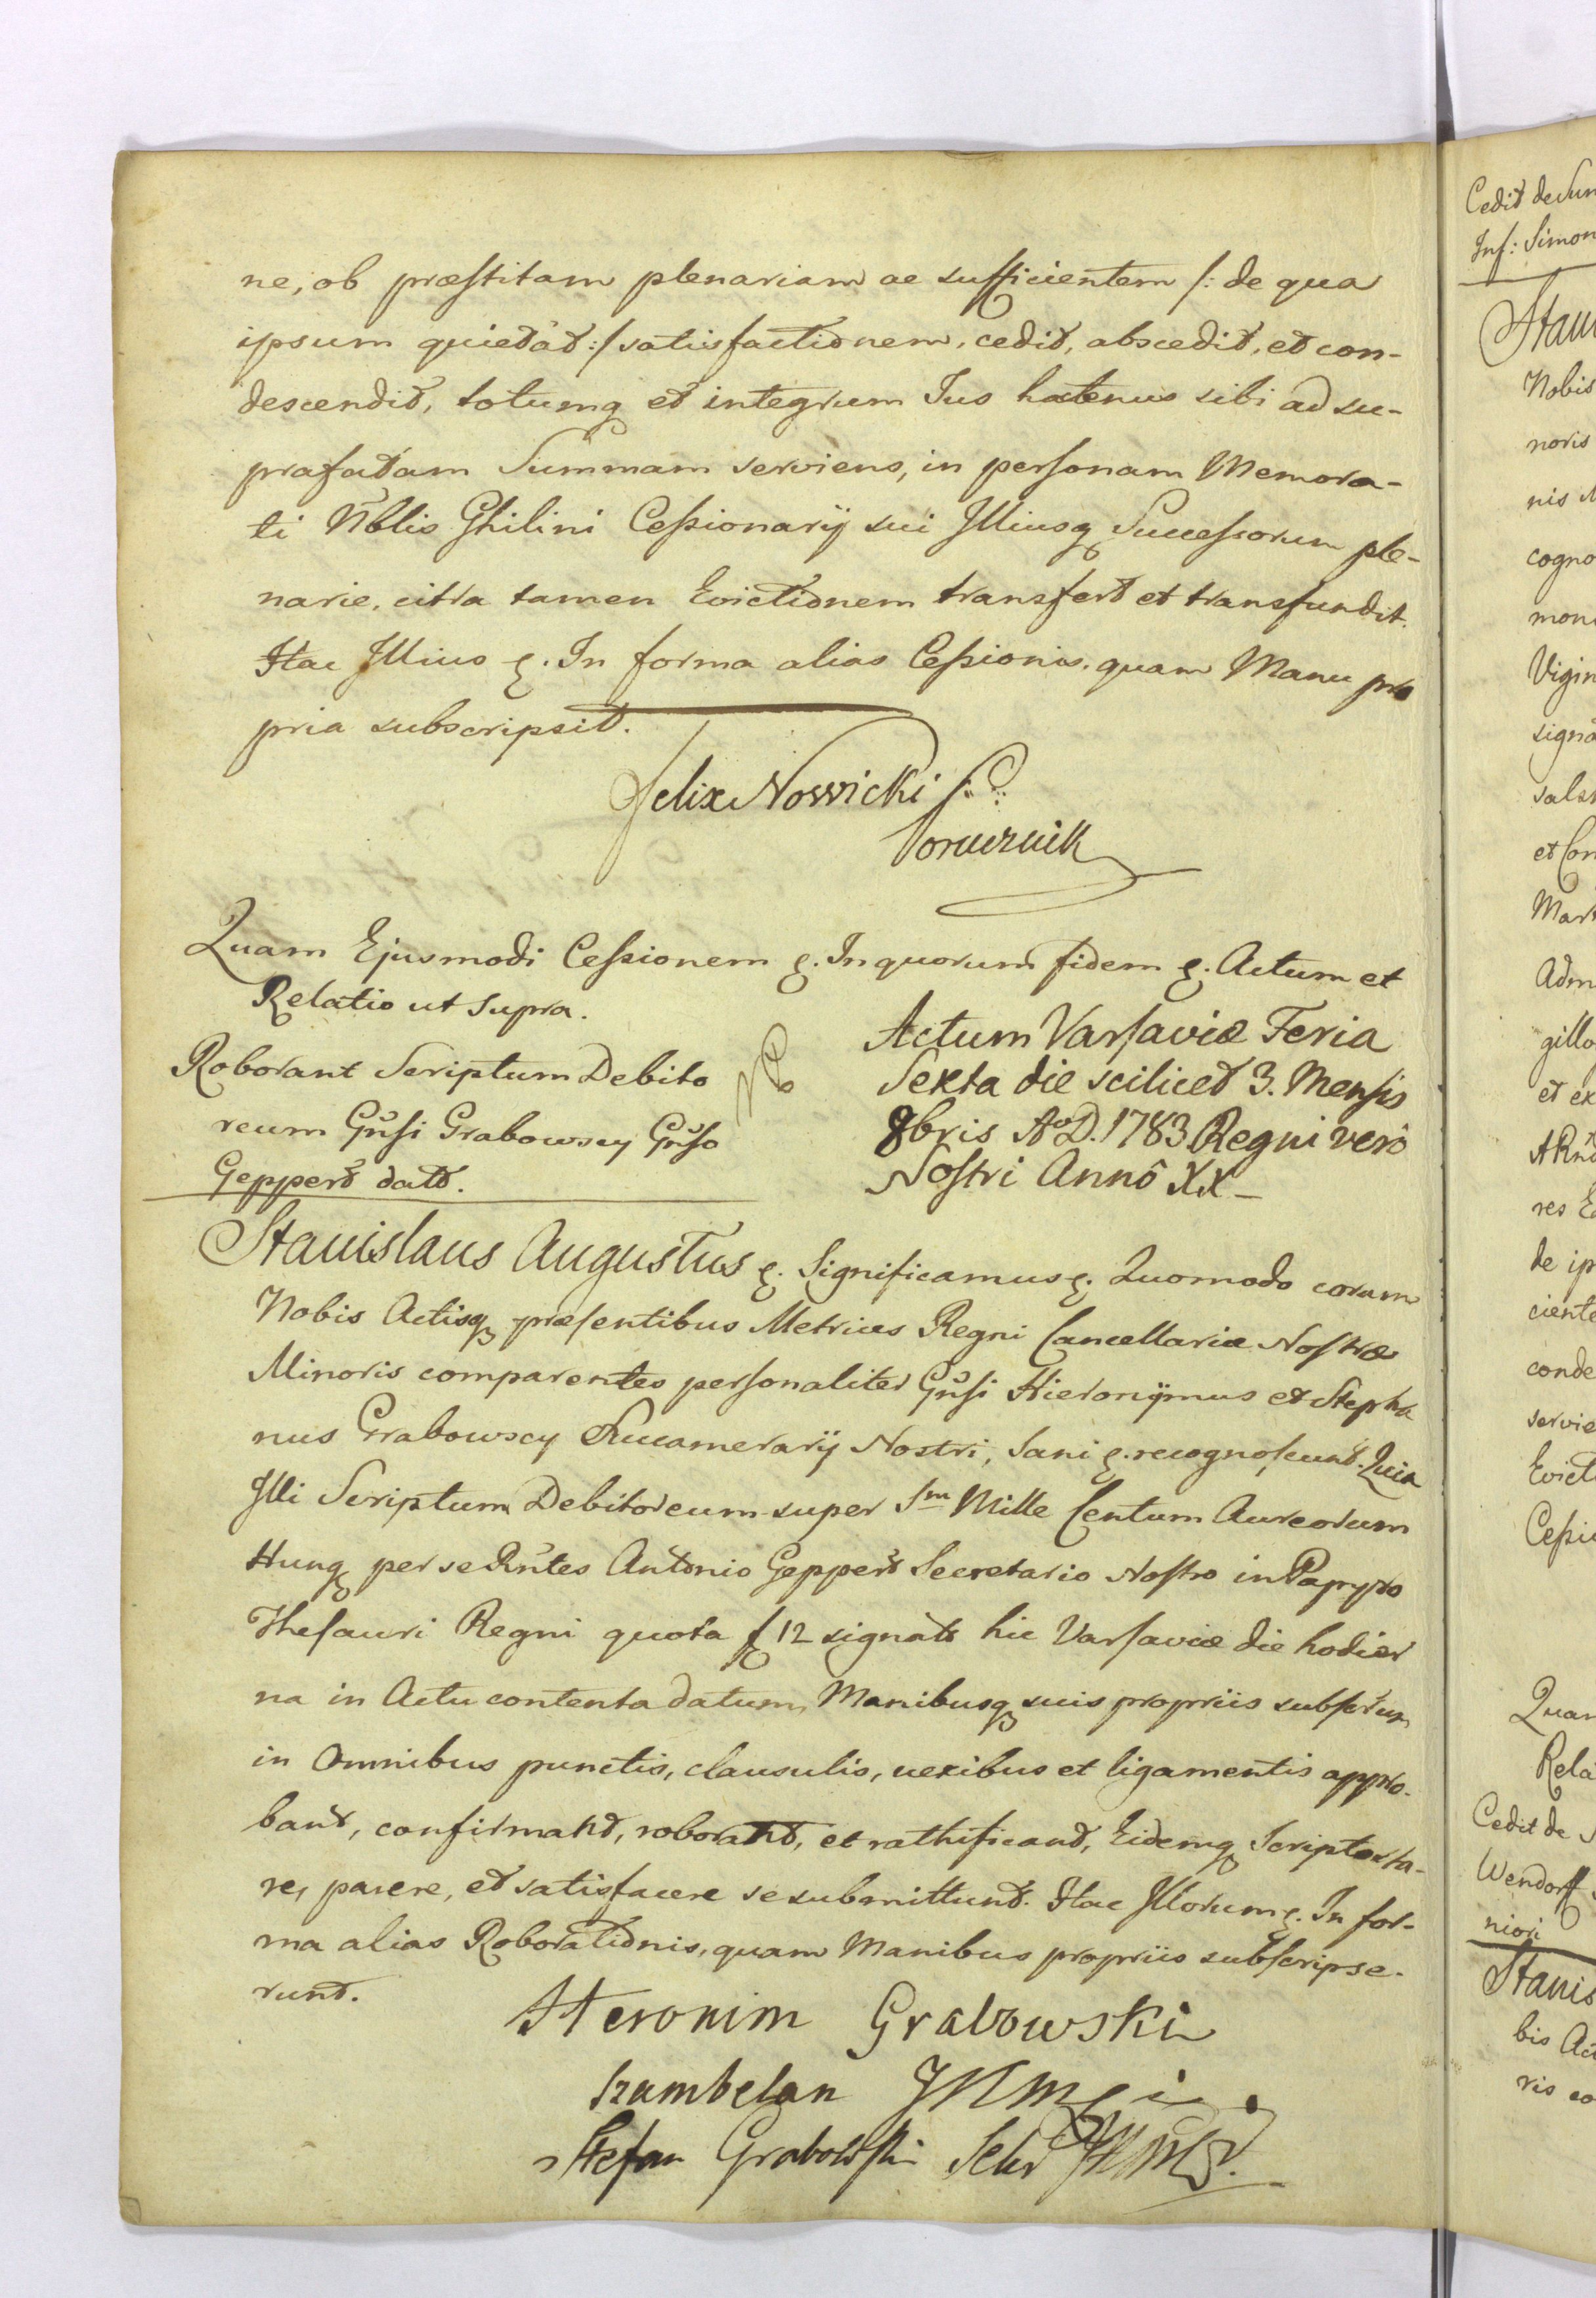 ne, ob præstitam plenariam ac sufficientem /: de qua
ipsum quietat :/ satisfactionem, cedit, abscedit, et con-
descendit, totumq et integrum Jus hactenus sibi ad su-
prafatam Summam serviens, in personam Memora-
ti Nblis Ghilini Cessionarij sui Illiusq Successorum ple-
narie, citra tamen Evictionem transfert et transfundit.
Hac Illius &. In forma alias Cessionis. quam Manu pro
pria subscripsit.
Felix Nowicki
Porucznik
Quam Ejusmodi Cessionem &. In quorum fidem &. Actum et
Relatio ut Supra.
Actum Varsaviæ Feria
Sexta die scilicet 3. Mensis
8bris Ao D. 1783 Regni verò
Nostri Annô XX
Roborant Scriptum Debito
reum Gnsi Grabowscy Gnso
Geppert dato.
Stanislaus Augustus &. Significamus &. Quomodo coram
Nobis Actisq præsentibus Metrices Regni Cancellariæ Nostræ
Minoris comparentes personaliter Gnsi Hieronÿmus et Stepha
nus Grabowscy Succamerarij Nostri, Sani &. recognoscunt. Quia
Illi Scriptum Debitoreum super Sm Mille Centum Aureorum
Hung per se Rntes Antonio Geppert Secretario Nostro in Papyro
Thesauri Regni quota f 12 signato hic Varsaviæ die hodier
na in Actu contenta datum, Manibusq suis propriis subscrum
in Omnibus punctis, clausulis, nexibus et ligamentis appro-
bant, confirmant, roborant, et rathificant, Eidemq Scripto sta-
re, parere, et satisfacere se submittunt. Hac Illorum &. In for-
ma alias Roborationis, quam Manibus propriis subscripse-
runt.
Heronim Grabowski
szambelan JKMci
Stefan Grabowski
Cedit de Sum
Inf: Simon
Nobis
noris
cogno
Vigin
signa
et Con
Adm
gillo
et ex
res
de ip
ciente
conde
servie
Evict
Cessi
Quam
Rela
Cedit de
Wendorff
niori
Stanis
bis Act
ris co